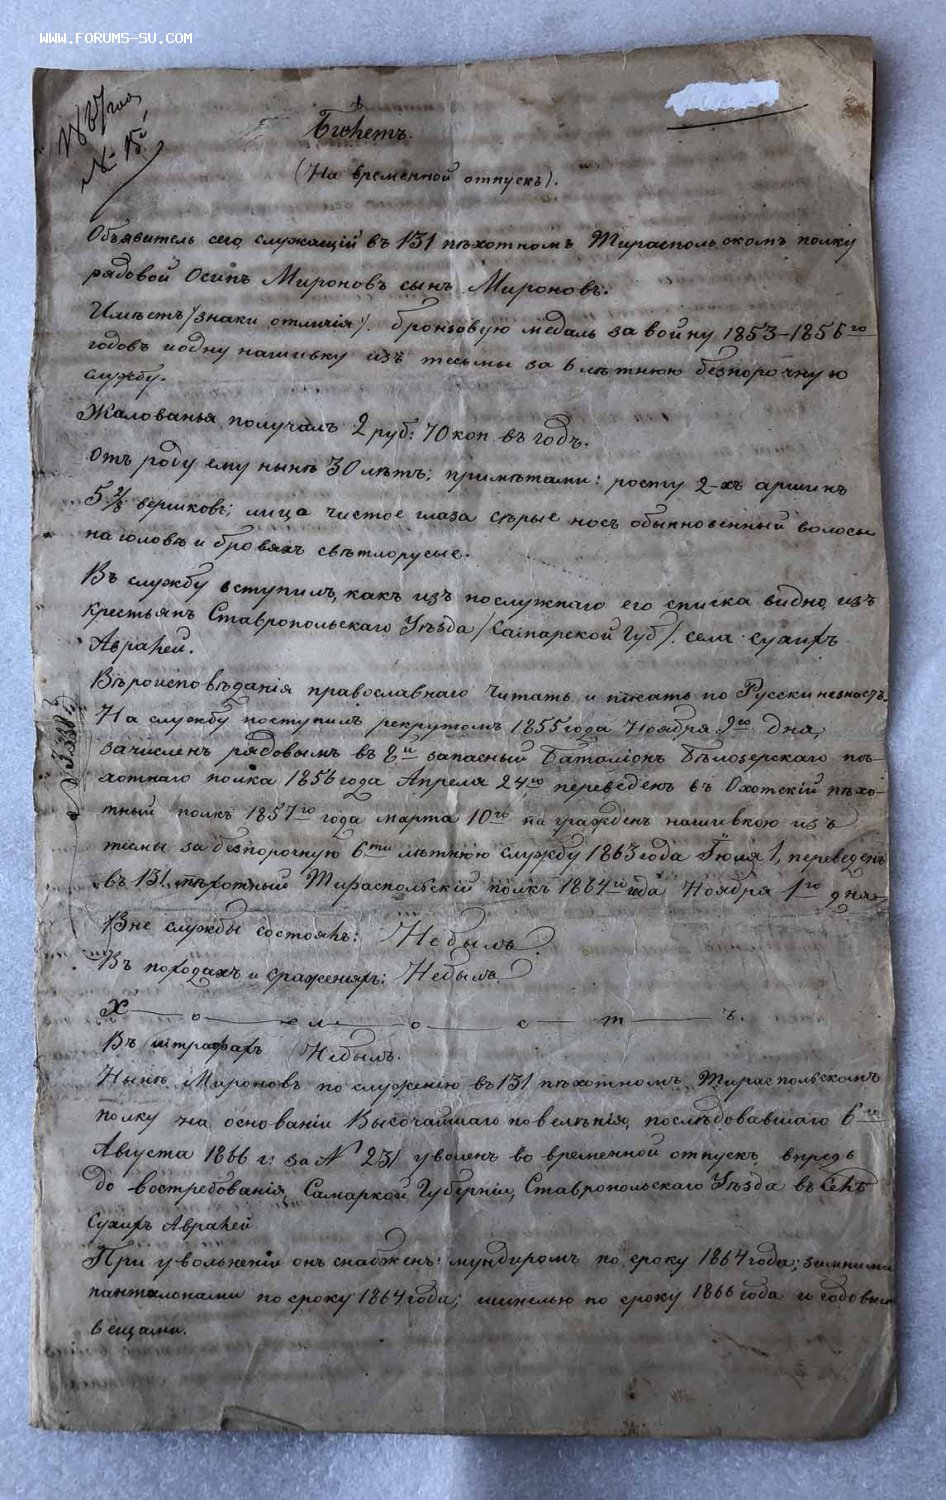 WWW.FORUMS-SU.COM
№ 15.
Билетъ.
(На временной отпускъ).
Объявитель сего служащій въ 131 пѣхотномъ Тираспольскомъ полку
рядовой Осипъ Мироновъ сынъ Мироновъ.
Имѣетъ /знаки отличія/. бронзовую медаль за войну 1853–1856го
годовъ и одну нашивку изъ тесьмы за 6 лѣтнюю безпорочную
службу.
Жалованья получалъ 2 руб: 70 коп въ годъ.
Отъ роду ему нынѣ 30 лѣтъ; примѣтами: росту 2-хъ аршинъ
5 2/8 вершковъ; лица чистое глаза сѣрые носъ обыкновенный волосы
на головѣ и бровяхъ свѣтлорусые.
Въ службу вступилъ, какъ изъ послужнаго его списка видно, изъ
крестьянъ Ставропольскаго Уѣзда /Самарской Губ/. села
Вѣроисповѣданія православнаго Читать и писать по Русски незнаетъ.
На службу поступилъ рекрутомъ 1855 года Ноября 9го дня,
зачисленъ рядовымъ въ 8й запасный Баталіонъ Бѣлозерскаго пѣ-
хотнаго полка 1856 года Апреля 24го переведенъ въ Охотскій пѣхо-
тный полкъ 1857го года марта 10го награжденъ нашивкою изъ
тесмы за безпорочную 6ти лѣтнюю службу 1863 года Іюля 1, переведенъ
въ 131 пѣхотный Тираспольскій полкъ 1864го года Ноября 1го дня
Вне службы состоялъ: Небылъ
Въ походахъ и сраженіяхъ: Небылъ.
Х — о — л — о — с — т — ъ.
Въ штрафахъ Небылъ.
Нынѣ Мироновъ по служенію въ 131 пѣхотномъ Тираспольскомъ
полку на основаніи Высочайшаго повелѣнія, послѣдовавшаго 6го
Августа 1866 г: за № 231 уволенъ во временной отпускъ впредь
до востребованія, Самаркой Губерніи, Ставропольскаго Уѣзда въ
При увольненіи онъ снабженъ: мундиромъ по сроку 1864 года; зимними
панталонами по сроку 1864 года; шинелью по сроку 1866 года и годовыми
вещами.